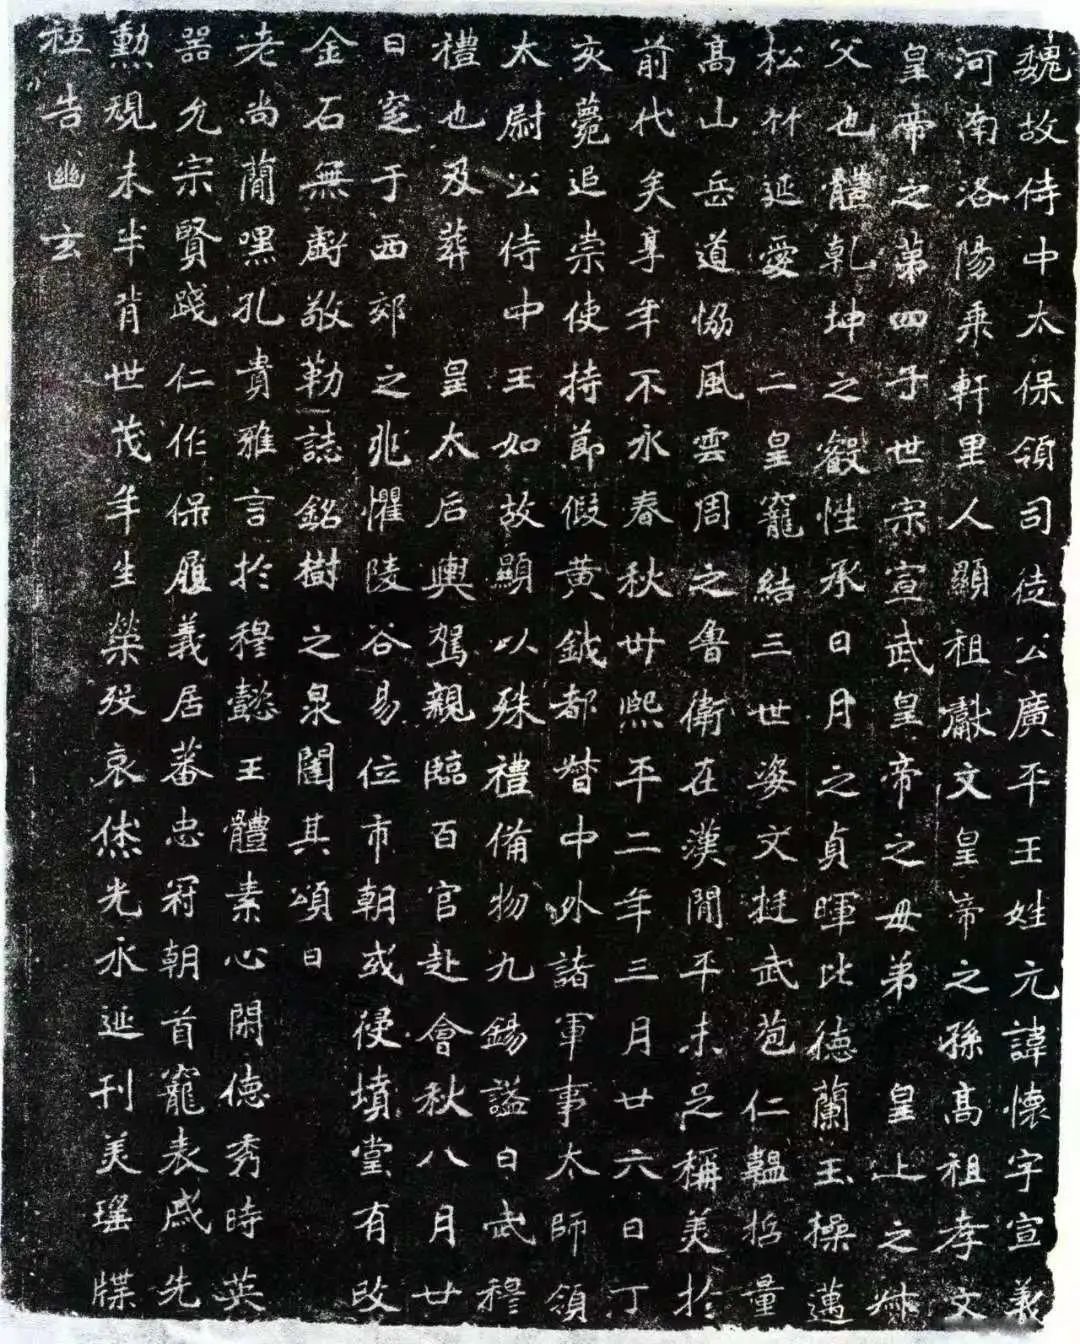 魏故侍中太保領司徒公廣平王姓元諱懷字宣義
河南洛陽乘軒里人顯祖獻文皇帝之孫高祖孝文
皇帝之第四子世宗宣武皇帝之母弟皇上之叔
父也體乾坤之叡性承日月之貞暉比德蘭玉操邁
松竹延愛二皇寵結三世姿文挺武苞仁韞哲量
高山岳道協風雲周之魯衛在漢閒平未足稱美於
前代矣享年不永春秋卅熙平二年三月廿六日丁
亥薨追崇使持節假黃鉞都督中外諸軍事太師領
太尉公侍中王如故顯以殊禮備物九錫謚曰武穆
禮也及葬皇太后輿駕親臨百官赴會秋八月廿
日窆于西郊之兆懼陵谷易位市朝或侵墳堂有改
金石無虧敬勒誌銘樹之泉闥其頌曰
老尚簡嘿孔貴雅言於穆懿王體素心閑德秀時英
器允宗賢踐仁作保履義居蕃忠冠朝首寵表戚先
勳規未半背世茂年生榮歿哀休光永延刊美瑤牒
祗告幽玄